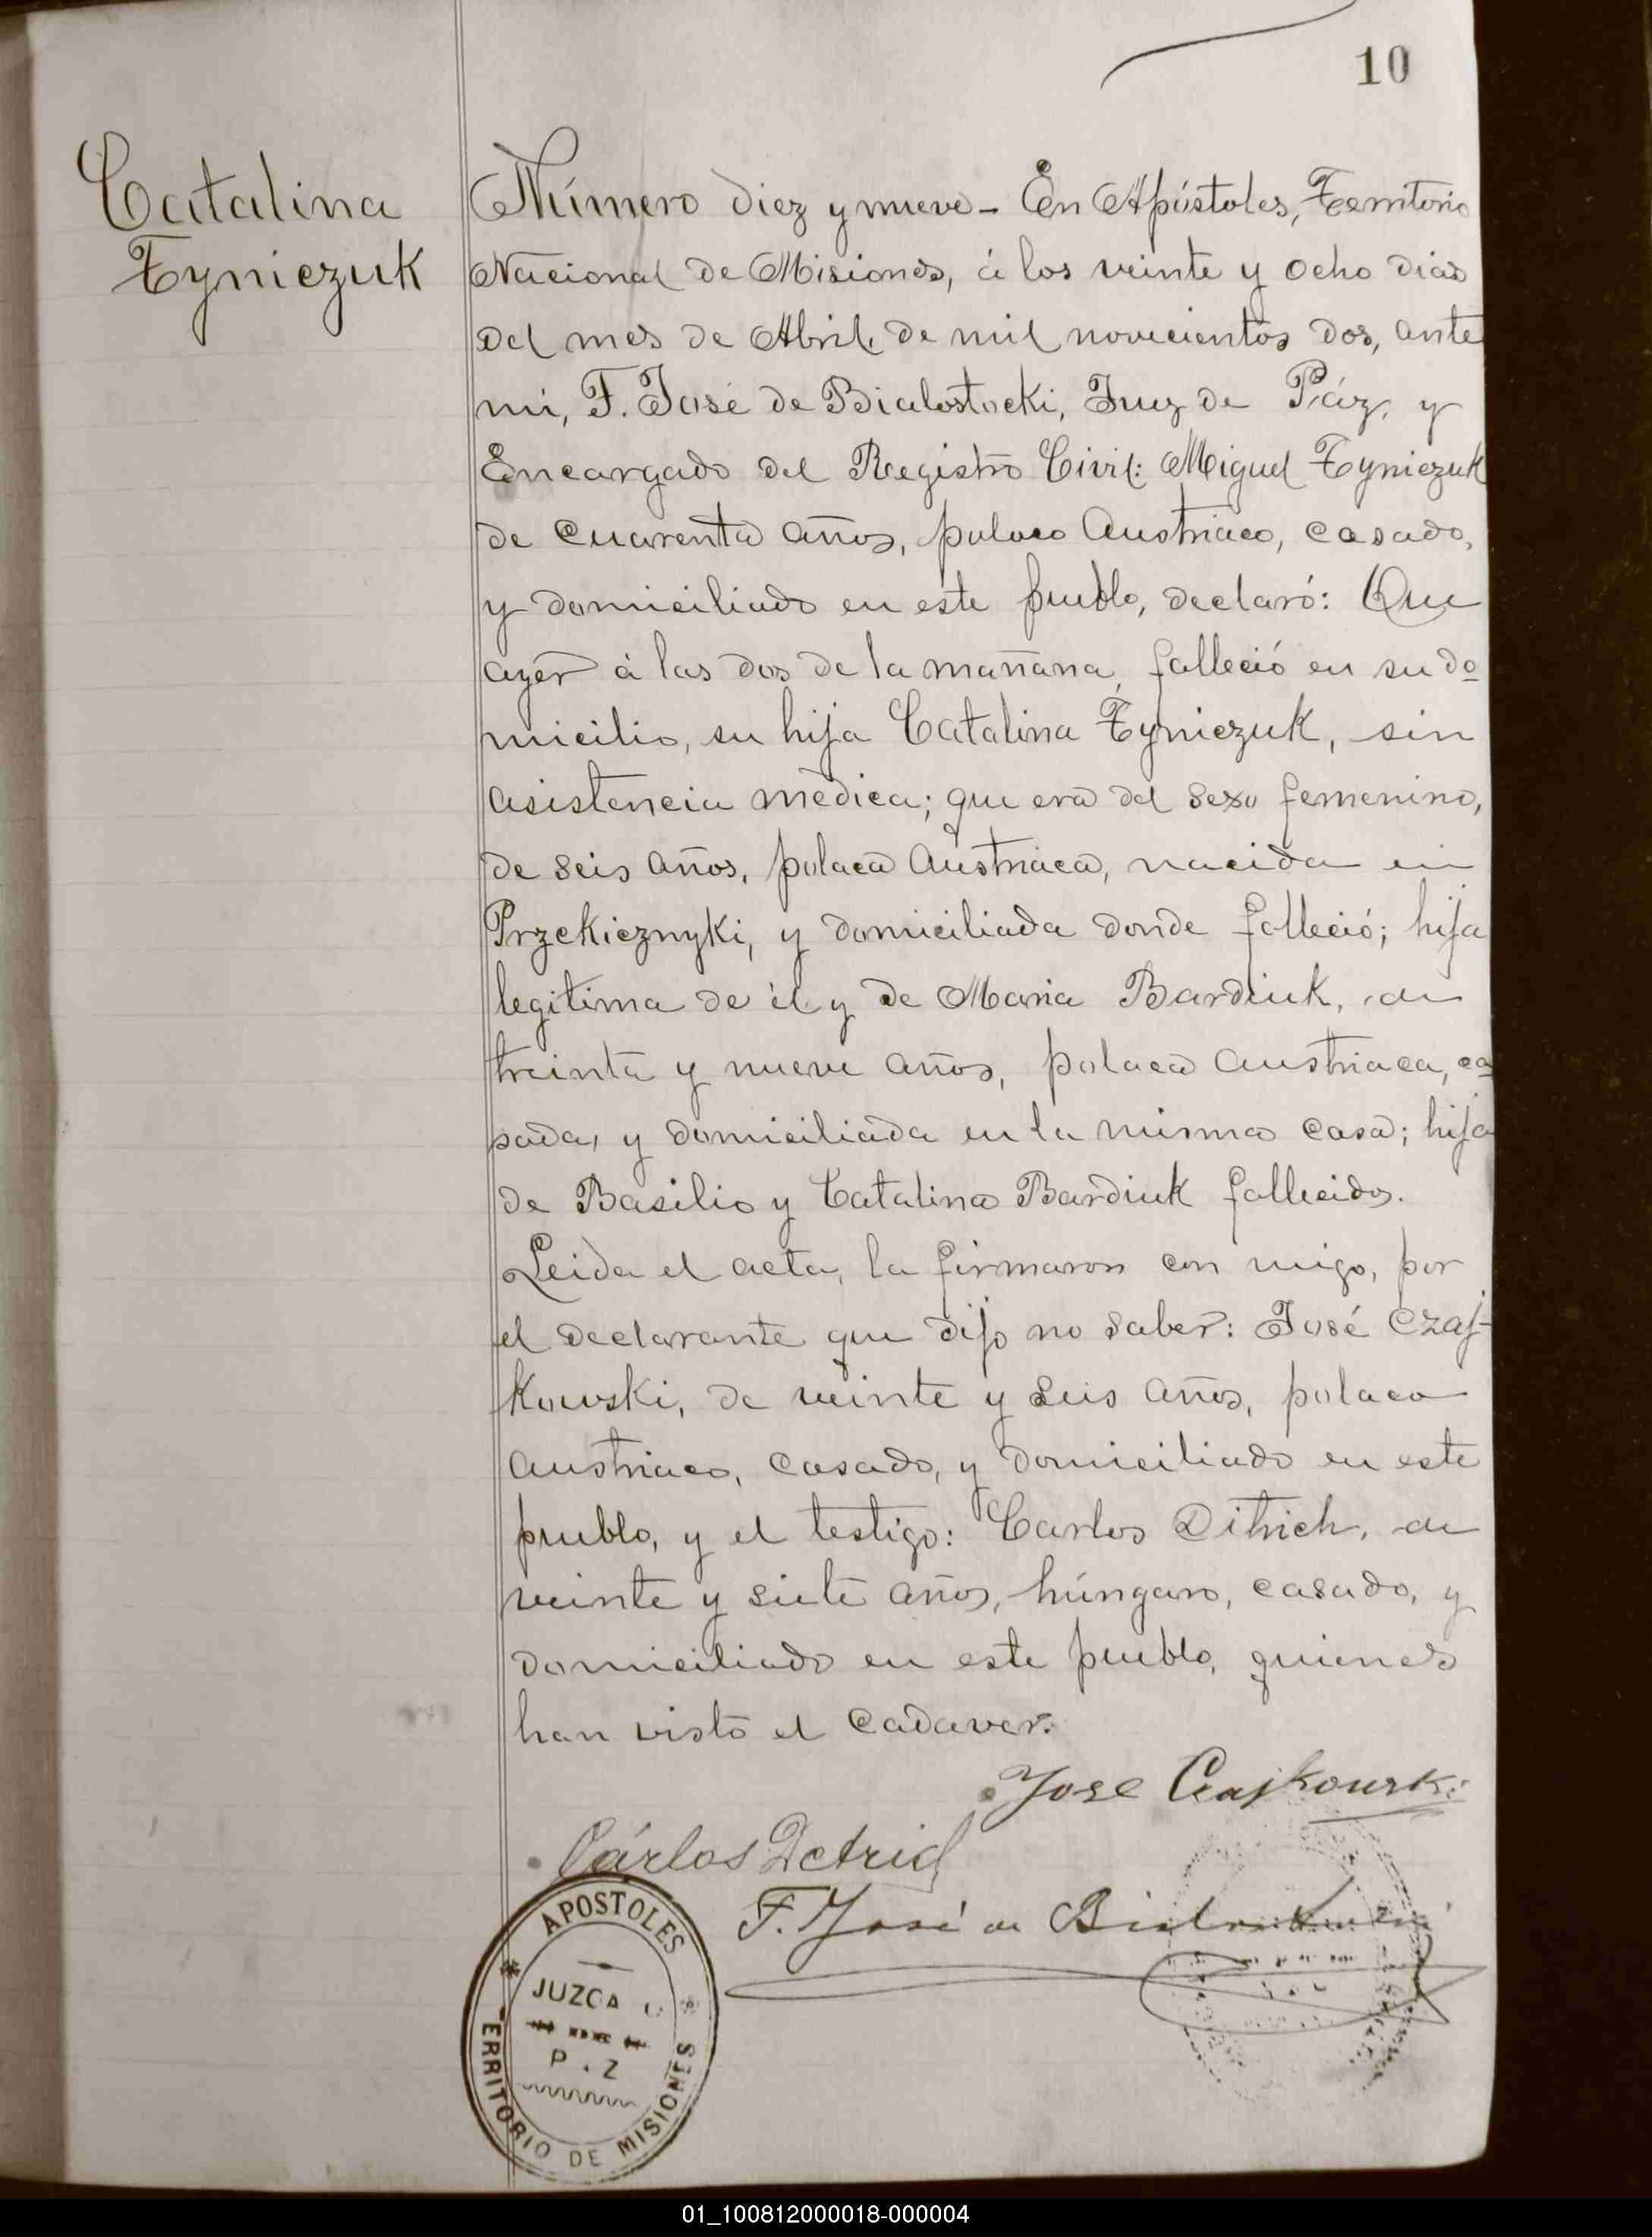 10
Catalina
Tyniczuk
Número diez y nueve - En Apóstoles, Territorio
Nacional de Misiones, á los veinte y ocho dias
del mes de Abril, de mil novecientos dos, ante
mi, F. José de Bialostocki, Juez de Páz, y
Encargado del Registro Civil: Miguel Tyniczuk
de cuarenta años, polaco Austriaco, casado,
y domiciliado en este pueblo, declaró: Que
ayer á las dos de la mañana, falleció en su do
micilio, su hija Catalina Tyniczuk, sin
asistencia medica; que era del sexo femenino,
de seis años, polaca Austriaca, nacida en
Przekicznyki, y domiciliada donde falleció; hija
legitima de él y de Maria Bardiuk, de
treinta y nueve años, polaca austriaca, ca
sada, y domiciliada en la misma casa; hija
de Basilio y Catalina Bardiuk fallecidos.
Leida el acta, la firmaron con migo, por
el declarante que dijo no saber: José Czaj-
kowski, de veinte y seis años, polaco
austriaco, casado, y domiciliado en este
pueblo, y el testigo: Carlos Ditrich, de
veinte y siete años, húngaro, casado, y
domiciliado en este pueblo, quienes
han visto el cadaver.
Jose Czajkowski
Cárlos Detrich
F. José de Bialostocki
APOSTOLES
JUZGA
P . Z
ERRITORIO DE MISIONES
01_100812000018-000004